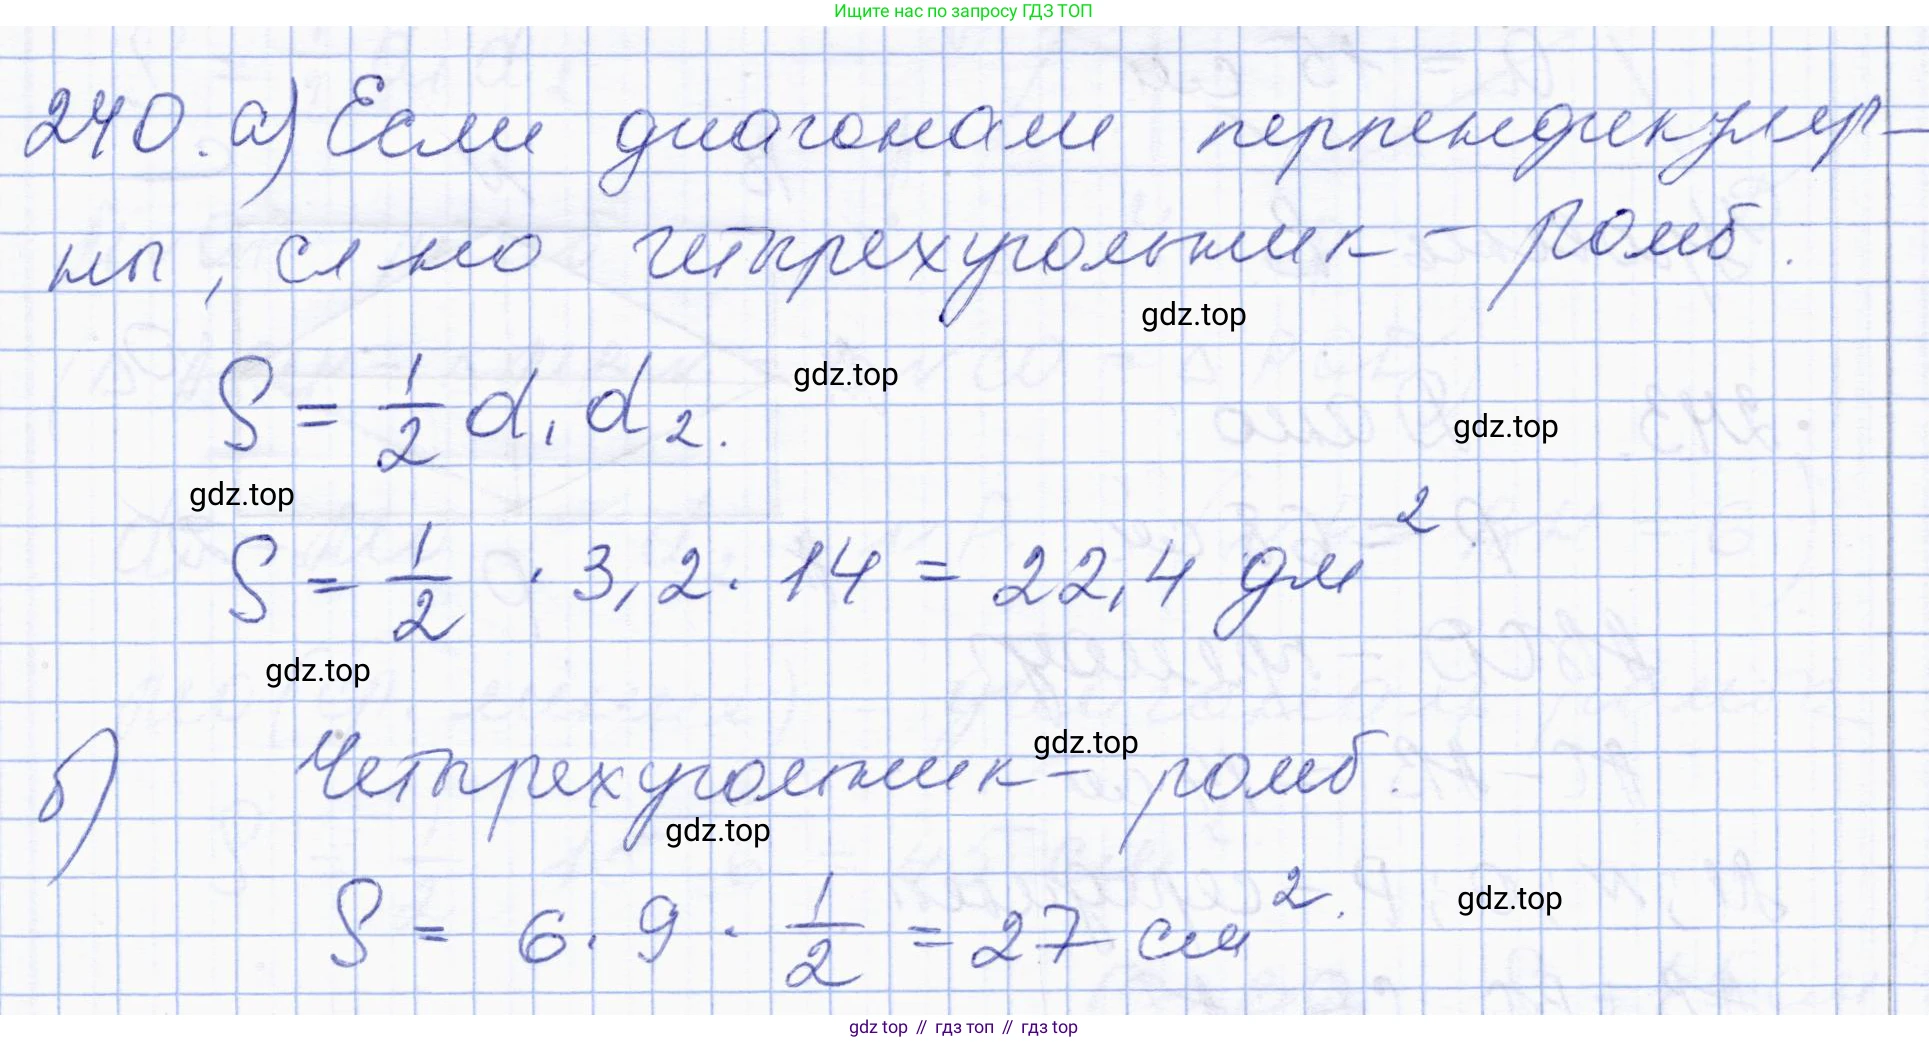 Ищите нас по запросу ГДЗ ТОП
240. а) Если диагонали перпендикуляр-
ны, сл-но четырехугольник - ромб.
gdz.top
S = 1/2 d₁ d₂.
gdz.top
gdz.top
gdz.top
S = 1/2 · 3,2 · 14 = 22,4 дм²
gdz.top
б) Четырехугольник - ромб.
gdz.top
gdz.top
S = 6 · 9 · 1/2 = 27 см².
gdz.top
gdz top // гдз топ // гдз top